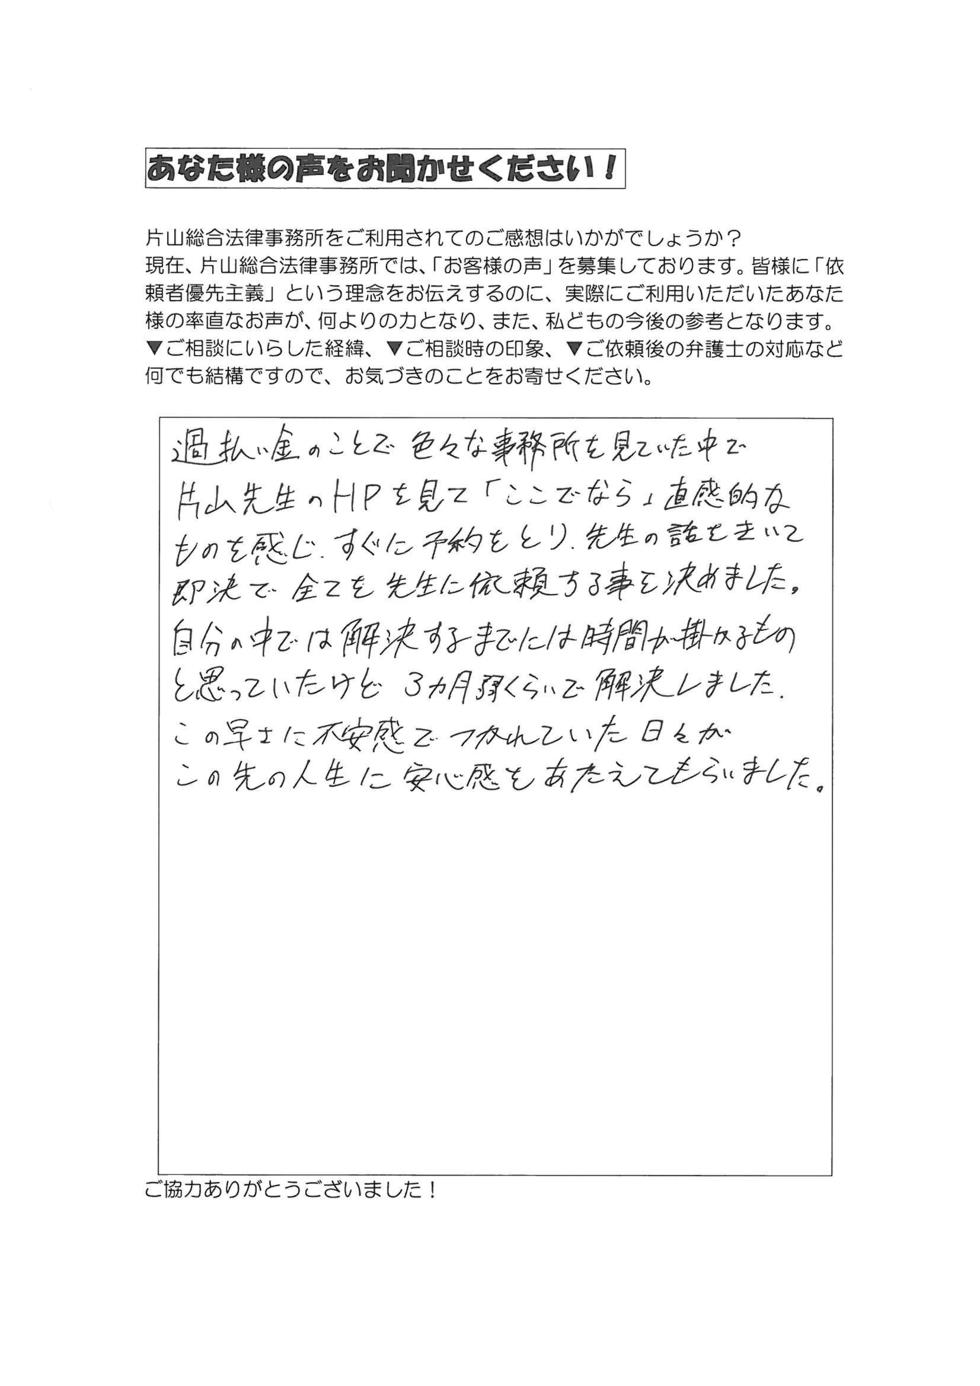 あなた様の声をお聞かせください！
片山総合法律事務所をご利用されてのご感想はいかがでしょうか？
現在、片山総合法律事務所では、「お客様の声」を募集しております。皆様に「依
頼者優先主義」という理念をお伝えするのに、実際にご利用いただいたあなた
様の率直なお声が、何よりの力となり、また、私どもの今後の参考となります。
▼ご相談にいらした経緯、▼ご相談時の印象、▼ご依頼後の弁護士の対応など
何でも結構ですので、お気づきのことをお寄せください。
過払い金のことで色々な事務所を見ていた中で
片山先生のHPを見て「ここでなら」直感的な
ものを感じ、すぐに予約をとり、先生の話をきいて
即決で全てを先生に依頼する事を決めました。
自分の中では解決するまでには時間が掛かるもの
と思っていたけど 3カ月弱くらいで解決しました。
この早さに不安感でつかれていた日々が
この先の人生に安心感をあたえてもらいました。
ご協力ありがとうございました！